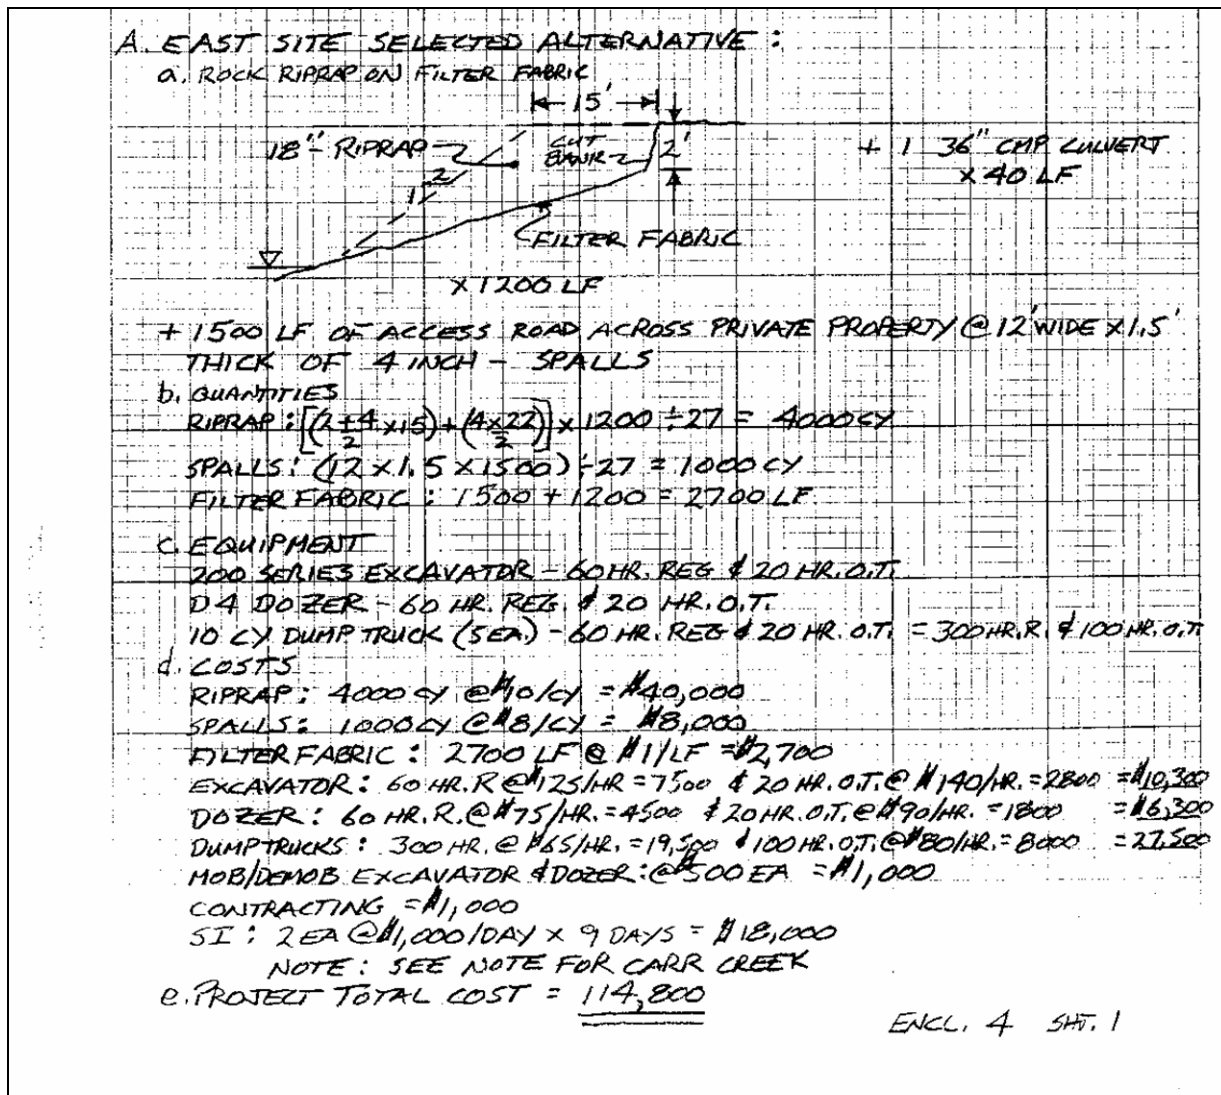 A. EAST SITE SELECTED ALTERNATIVE:
a. ROCK RIPRAP ON FILTER FABRIC
15'
18"- RIPRAP
CUT BANK
2'
+ 1 36" CMP CULVERT
x 40 LF
2
1
FILTER FABRIC
x 1200 LF
+ 1500 LF OF ACCESS ROAD ACROSS PRIVATE PROPERTY @ 12' WIDE x 1.5'
THICK OF 4 INCH - SPALLS
b. QUANTITIES
RIPRAP: [(2+4/2 x15)+(4x22/2)] x 1200 ÷ 27 = 4000 CY
SPALLS: (12 x 1.5 x 1500) ÷ 27 = 1000 CY
FILTER FABRIC: 1500 + 1200 = 2700 LF
c. EQUIPMENT
200 SERIES EXCAVATOR - 60 HR. REG & 20 HR. O.T.
D4 DOZER - 60 HR. REG. & 20 HR. O.T.
10 CY DUMP TRUCK (5 EA.) - 60 HR. REG & 20 HR. O.T. = 300 HR. R. & 100 HR. O.T.
d. COSTS
RIPRAP: 4000 CY @ $10/CY = $40,000
SPALLS: 1000 CY @ $8/CY = $8,000
FILTER FABRIC: 2700 LF @ $1/LF = $2,700
EXCAVATOR: 60 HR. R @ $125/HR = 7500 & 20 HR. O.T. @ $140/HR. = 2800 = $10,300
DOZER: 60 HR. R. @ $75/HR. = 4500 & 20 HR. O.T. @ $90/HR. = 1800 = $6,300
DUMP TRUCKS: 300 HR. @ $65/HR. = 19,500 & 100 HR. O.T. @ $80/HR. = 8000 = 27,500
MOB/DEMOB EXCAVATOR & DOZER: @ $500 EA = $1,000
CONTRACTING = $1,000
SI: 2 EA @ $1,000/DAY x 9 DAYS = $18,000
NOTE: SEE NOTE FOR CARR CREEK
e. PROJECT TOTAL COST = 114,800
ENCL. 4 SHT. 1